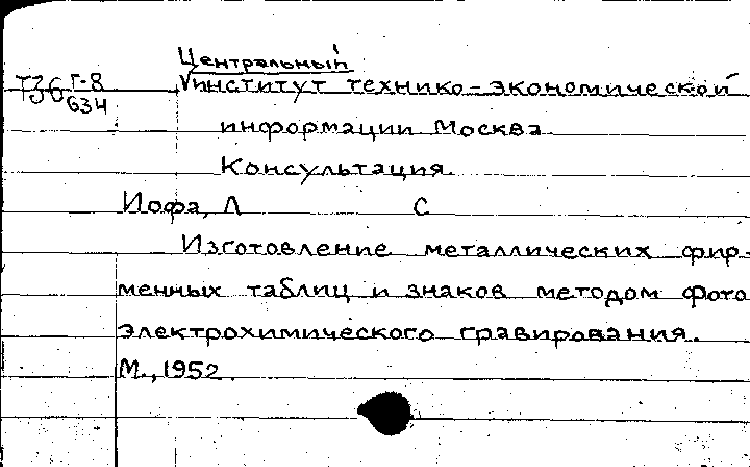 Центральный
Т36 Г-8 институт технико-экономической
634
информации Москва
Консультация
Иофа, Л С
Изготовление металлических фир-
менных таблиц и знаков методом фото
электрохимического гравирования.
М., 1952.